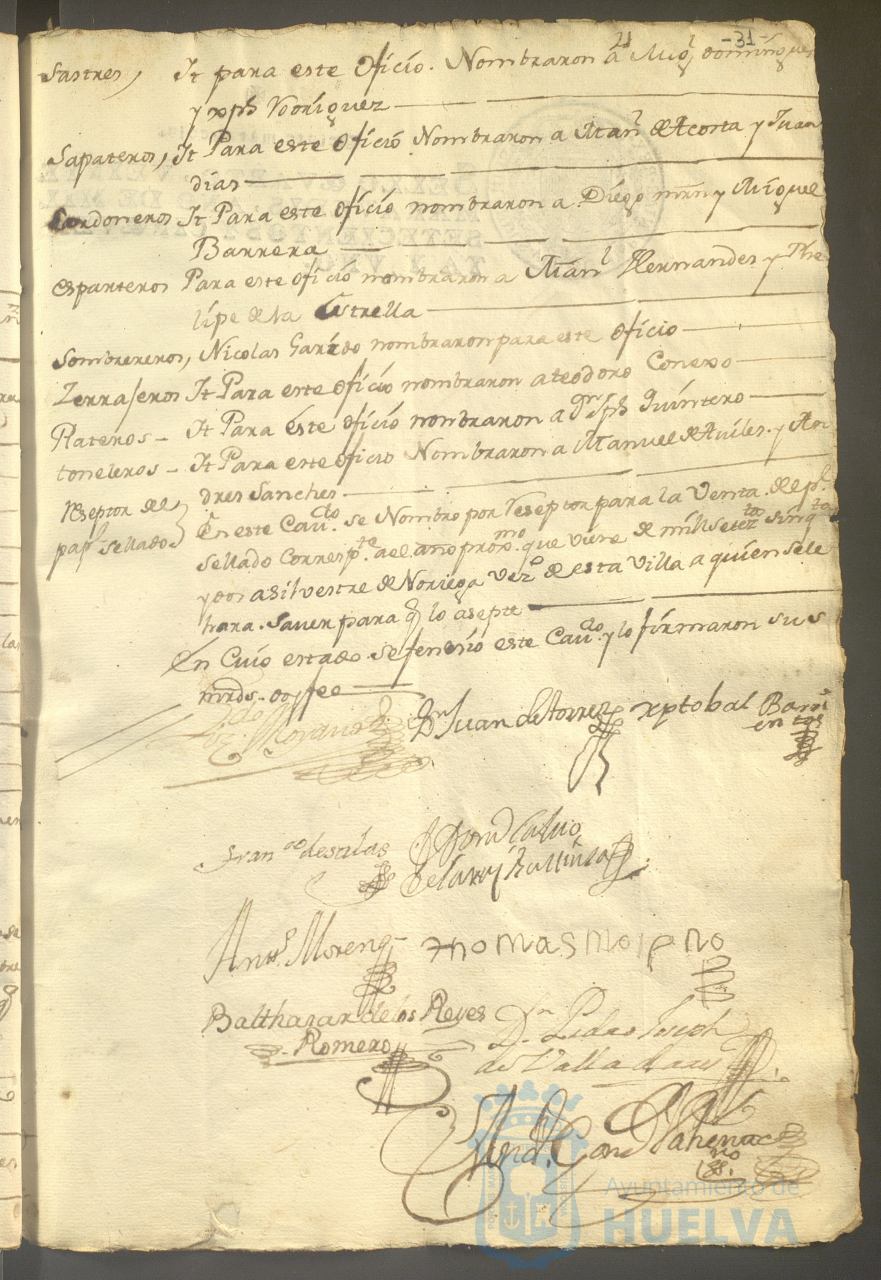 21 -31-
Sastres, It para este oficio. Nombraron a Mig.l dominguez
y xph Rodriguez
Sapateros, It Para este oficio Nombraron a Man.l de Acosta y Juan
dias
Cordoneros It Para este oficio nombraron a Diego mrn y Miguel
Barrera
esparteros Para este oficio nombraron a Man.l Hernandes y Phe
lipe de la Estrella
Sombrereros, Nicolas Garrido nombraron para este oficio
Zerrajeros It Para este oficio nombraron a teodoro
Plateros - It Para este oficio nombraron a Dn Jph Quintero
toneleros - It Para este oficio Nombraron a Manuel de Aviles y An
dres Sanches
Reseptor del En este Cavdo se Nombro por Reseptor para la Venta de pl
papl sellado sellado Correspte a el año proxmo que viene de mill setezto sinqta
y dos a silvestre de Noriega vezo de esta Villa a quien se le
hara saver para q lo asepte
En Cuio estado se fenesio este Cavdo y lo firmaron sus
mrds. doy fee
Dn Juan de torres xptobal Barri
entos
Franco de salas
Anto Moreno thomas Moreno
Balthazar de los Reyes Dn Pedro Joseph
Romero de Valladares
Ayuntamiento de
HUELVA